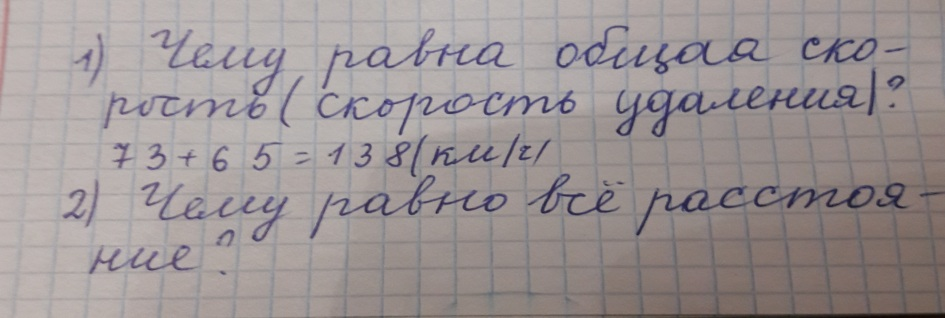 1) Чему равна общая ско-
рость (скорость удаления)?
73+65=138(км/ч)
2) Чему равно всё расстоя-
ние?